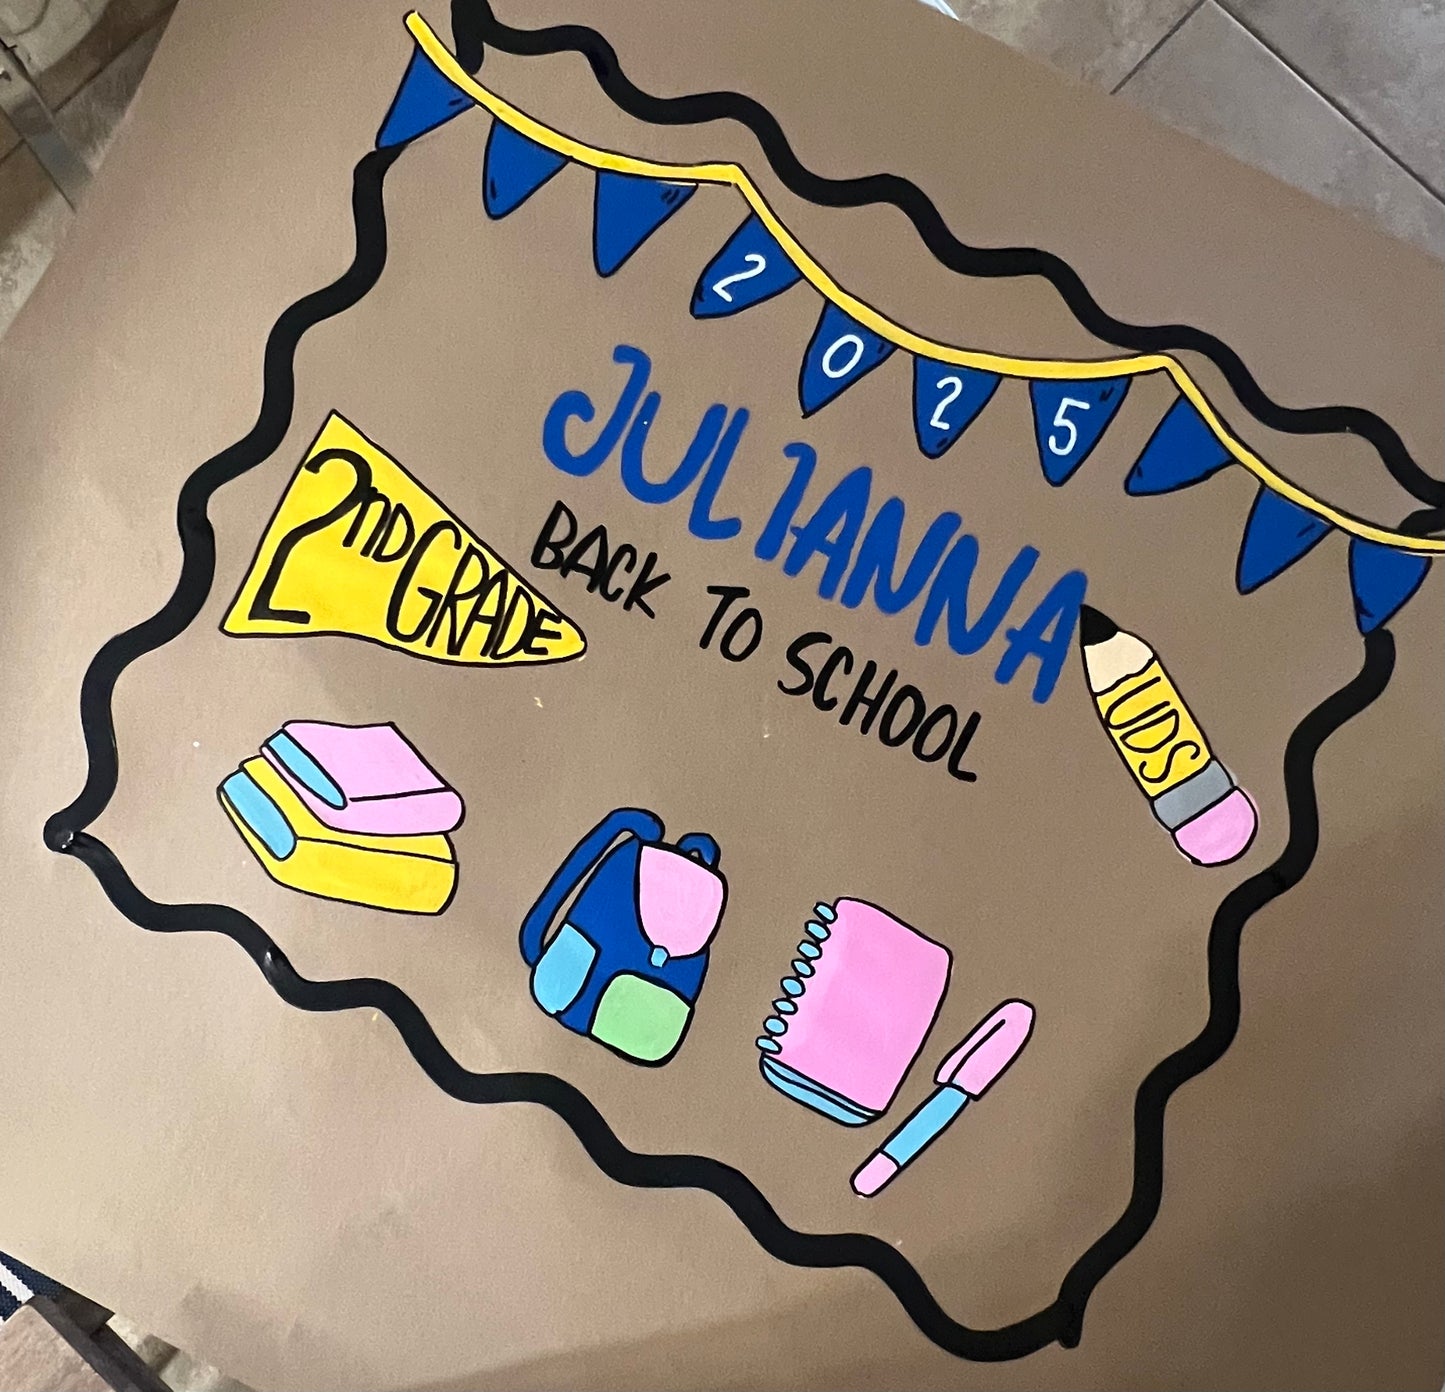 2025
JULIANNA
BACK TO SCHOOL
2nD GRADE
UDS